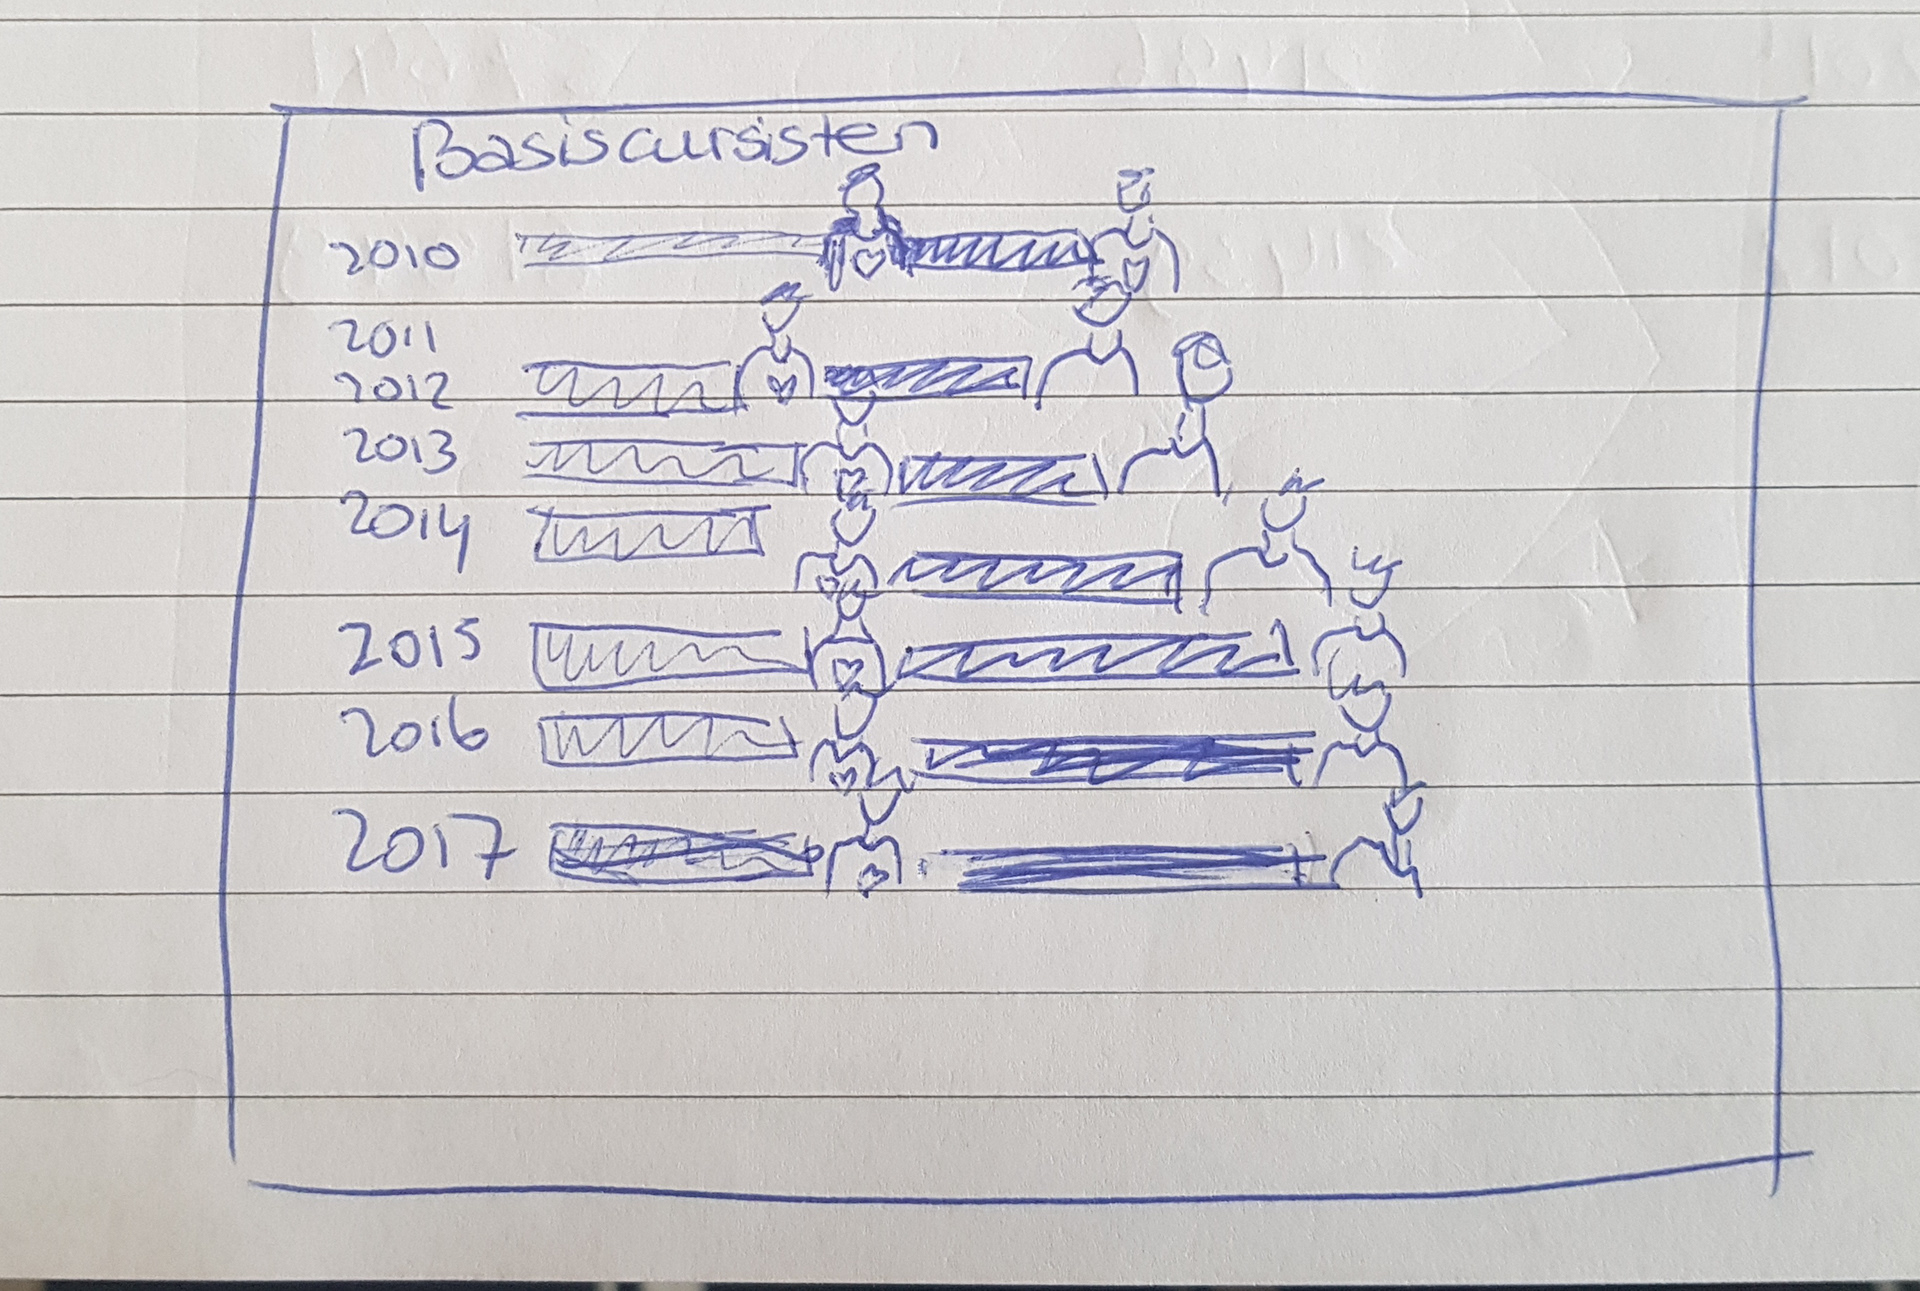 Basiscursisten
2010
2011
2012
2013
2014
2015
2016
2017